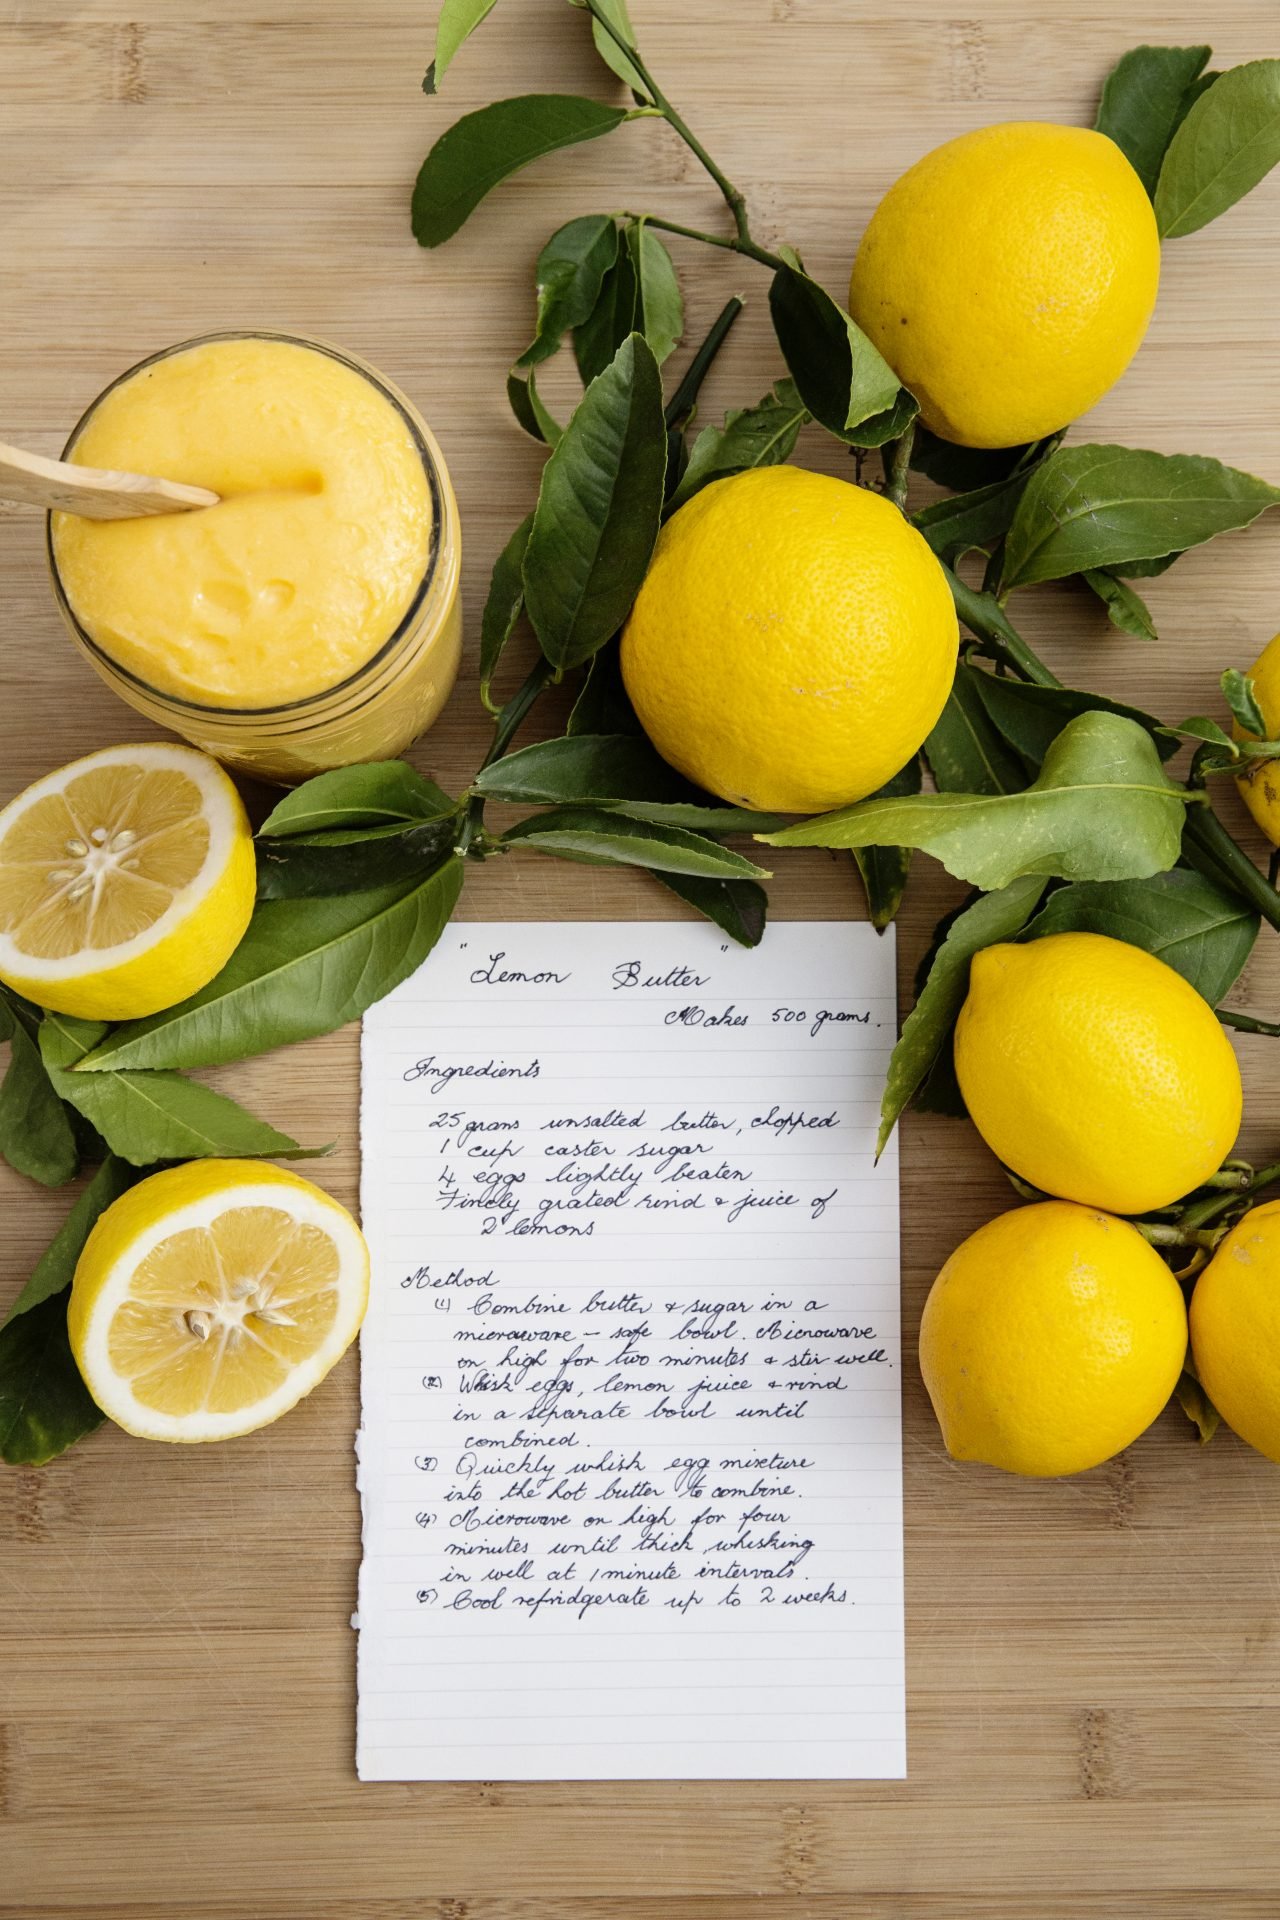 "Lemon Butter"
Makes 500 grams.
Ingredients
25 grams unsalted butter, chopped
1 cup caster sugar
4 eggs lightly beaten
Finely grated rind & juice of
2 lemons
Method
(1) Combine butter & sugar in a
microwave - safe bowl. Microwave
on high for two minutes & stir well.
(2) Whisk eggs, lemon juice & rind
in a separate bowl until
combined.
(3) Quickly whisk egg mixture
into the hot butter to combine.
(4) Microwave on high for four
minutes until thick, whisking
in well at 1 minute intervals.
(5) Cool refridgerate up to 2 weeks.